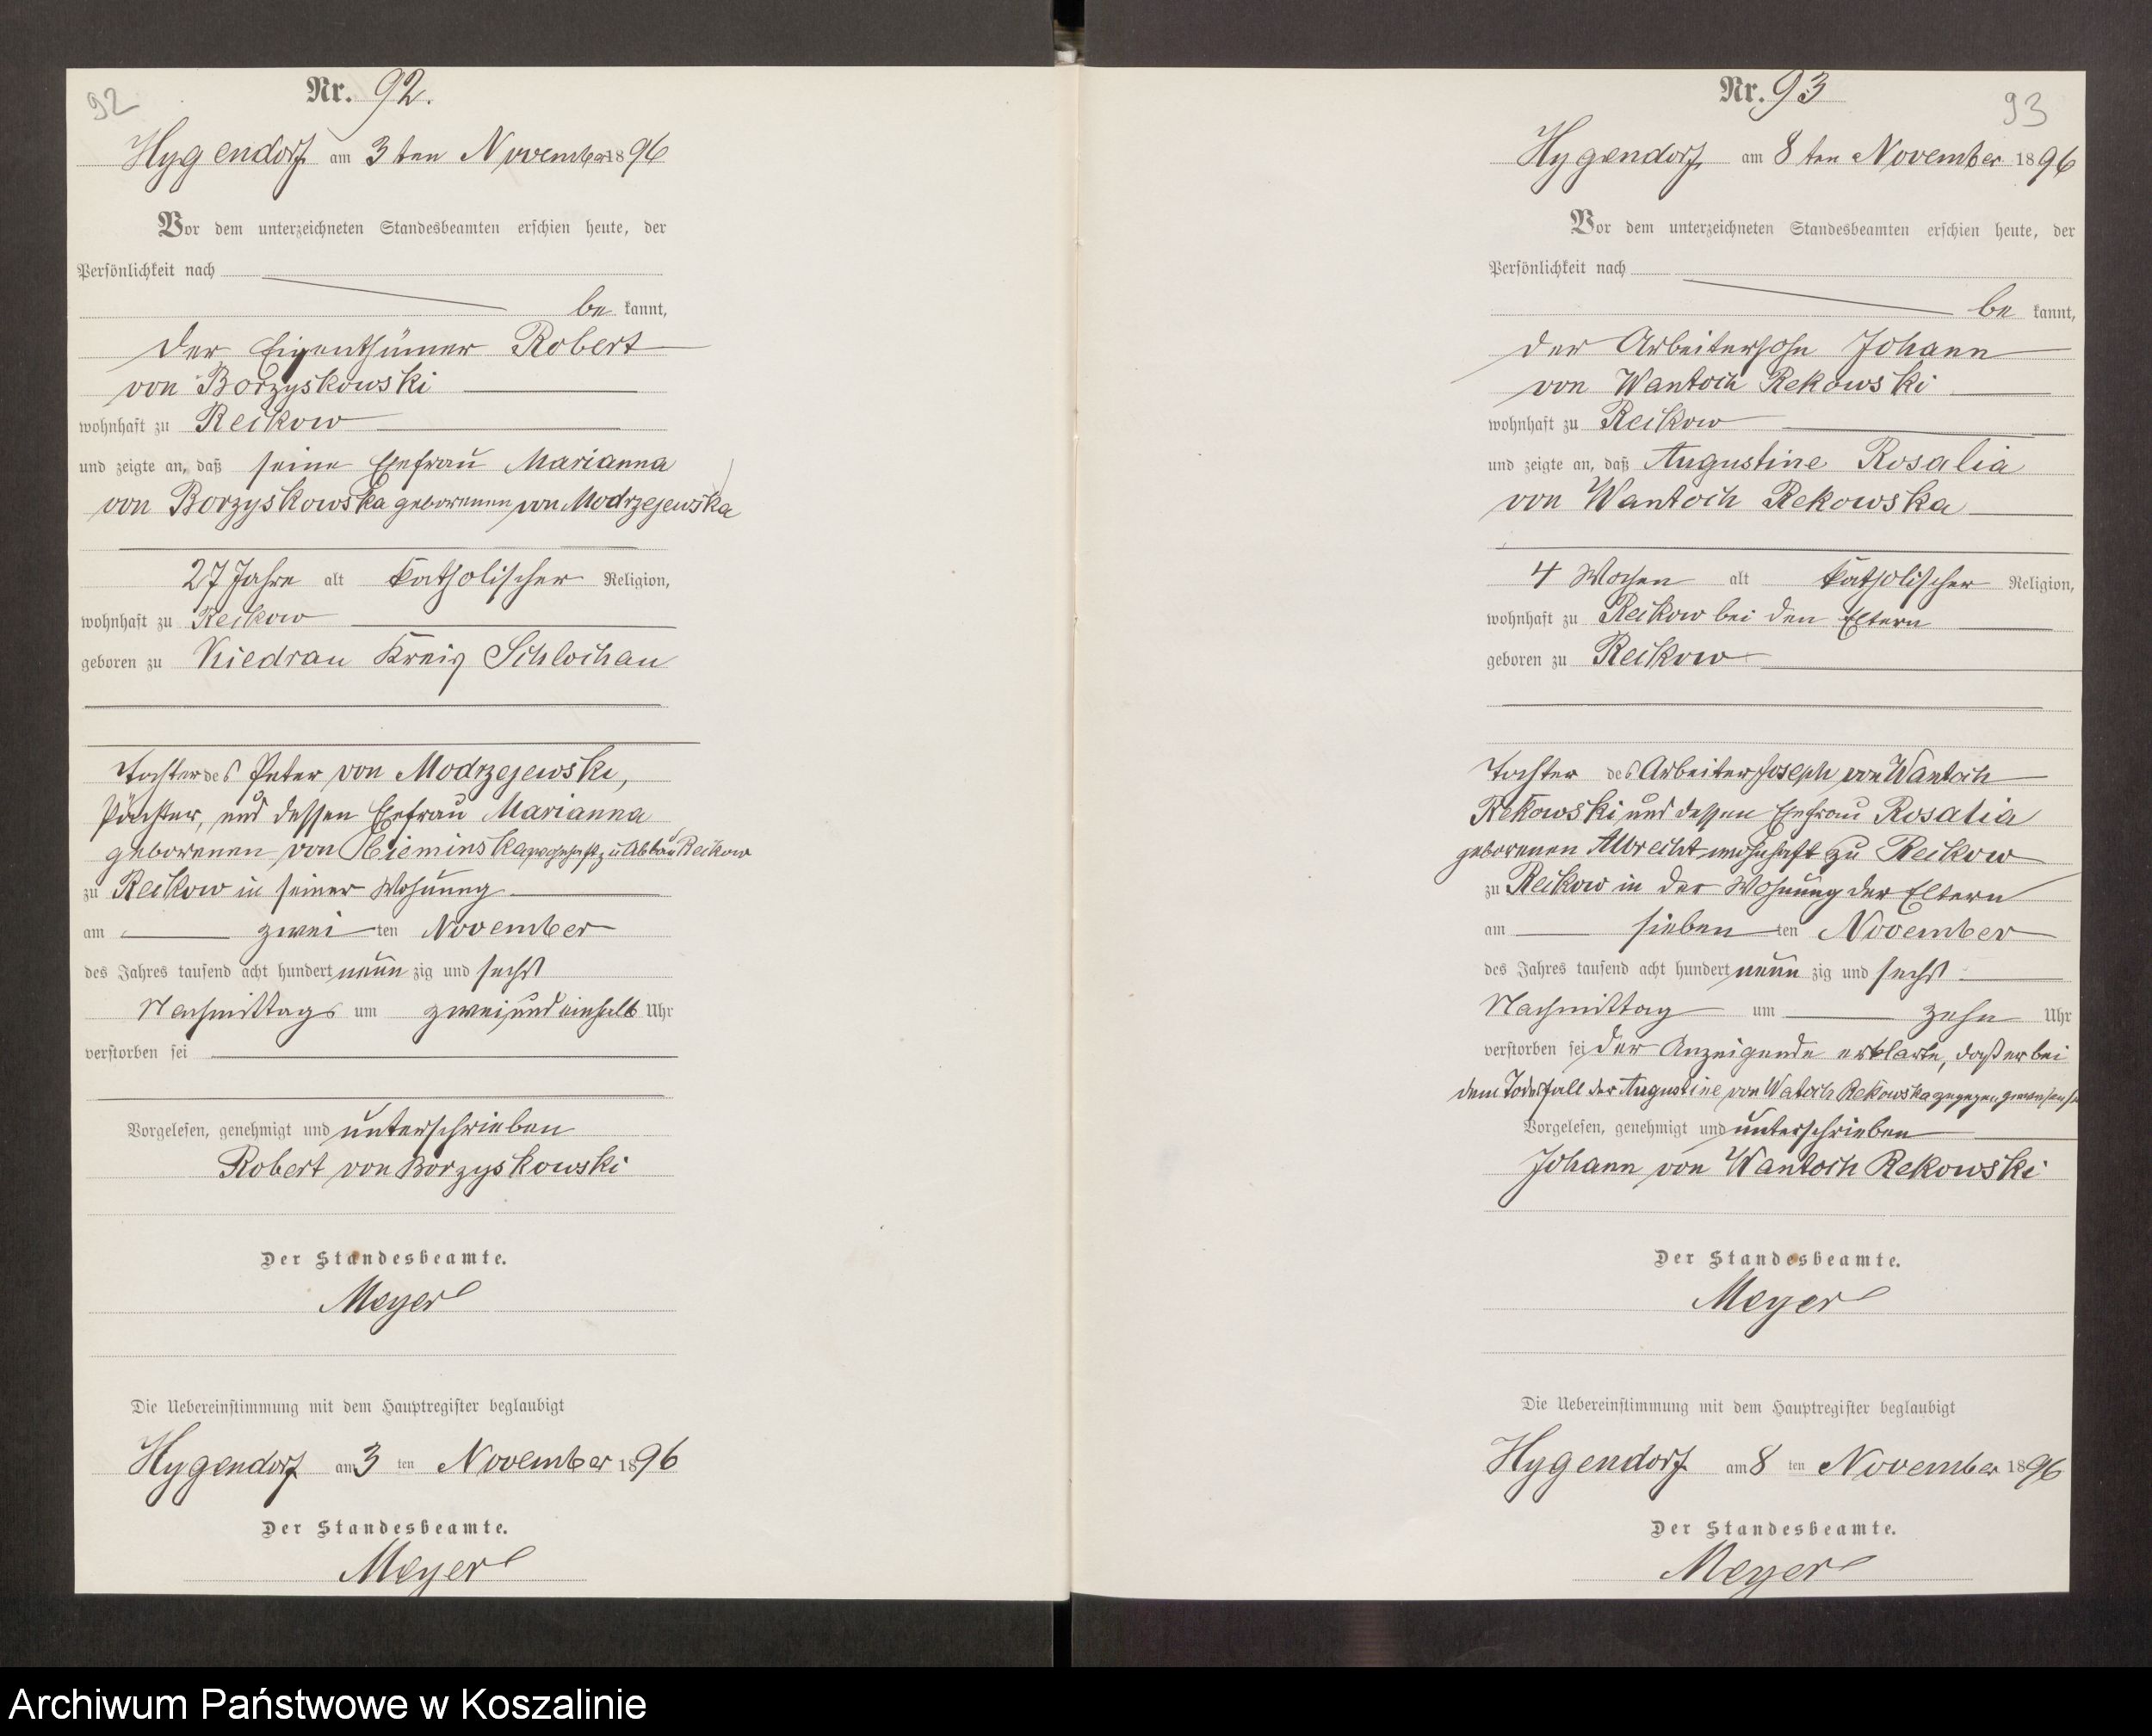 92
Nr. 92.
Hygendorf am 3 ten November 1896
Vor dem unterzeichneten Standesbeamten erschien heute, der
Persönlichkeit nach
be kannt,
der Eigenthümer Robert
von Borzyskowski
wohnhaft zu Reckow
und zeigte an, daß seine Ehefrau Marianna
von Borzyskowska geborenen von Modrzejewska
27 Jahre alt katholischer Religion,
wohnhaft zu Reckow
geboren zu Kiedrau Kreis Schlochau
Tochter des Peter von Modrzejewski,
Pächter, und dessen Ehefrau Marianna
geborenen von wohnhaft zu Abbau Reckow
zu Reckow in seiner Wohnung
am zwei ten November
des Jahres tausend acht hundert neun zig und sechs
Nachmittags um zwei und einhalb Uhr
verstorben sei
Vorgelesen, genehmigt und unterschrieben
Robert von Borzyskowski
Der Standesbeamte.
Meyer
Die Uebereinstimmung mit dem Hauptregister beglaubigt
Hygendorf am 3 ten November 1896
Der Standesbeamte.
Meyer
Nr. 93
93
Hygendorf am 8 ten November 1896
Vor dem unterzeichneten Standesbeamten erschien heute, der
Persönlichkeit nach
be kannt,
der Arbeitersohn Johann
von Wantoch Rekowski
wohnhaft zu Reckow
und zeigte an, daß Augustine Rosalia
von Wantoch Rekowska
4 Wochen alt katholischer Religion,
wohnhaft zu Reckow bei den Eltern
geboren zu Reckow
Tochter des Arbeiter Joseph von Wantoch
Rekowski und dessen Ehefrau Rosalia
geborenen Albrecht wohnhaft zu Reckow
zu Reckow in der Wohnung der Eltern
am sieben ten November
des Jahres tausend acht hundert neun zig und sechs
Nachmittag um zehn Uhr
verstorben sei der Anzeigende erklarte, daß er bei
dem Todesfall der Augustine von Watoch Rekowska zugegen gewesen sei
Vorgelesen, genehmigt und unterschrieben
Johann von Wantoch Rekowski
Der Standesbeamte.
Meyer
Die Uebereinstimmung mit dem Hauptregister beglaubigt
Hygendorf am 8 ten November 1896
Der Standesbeamte.
Meyer
Archiwum Państwowe w Koszalinie